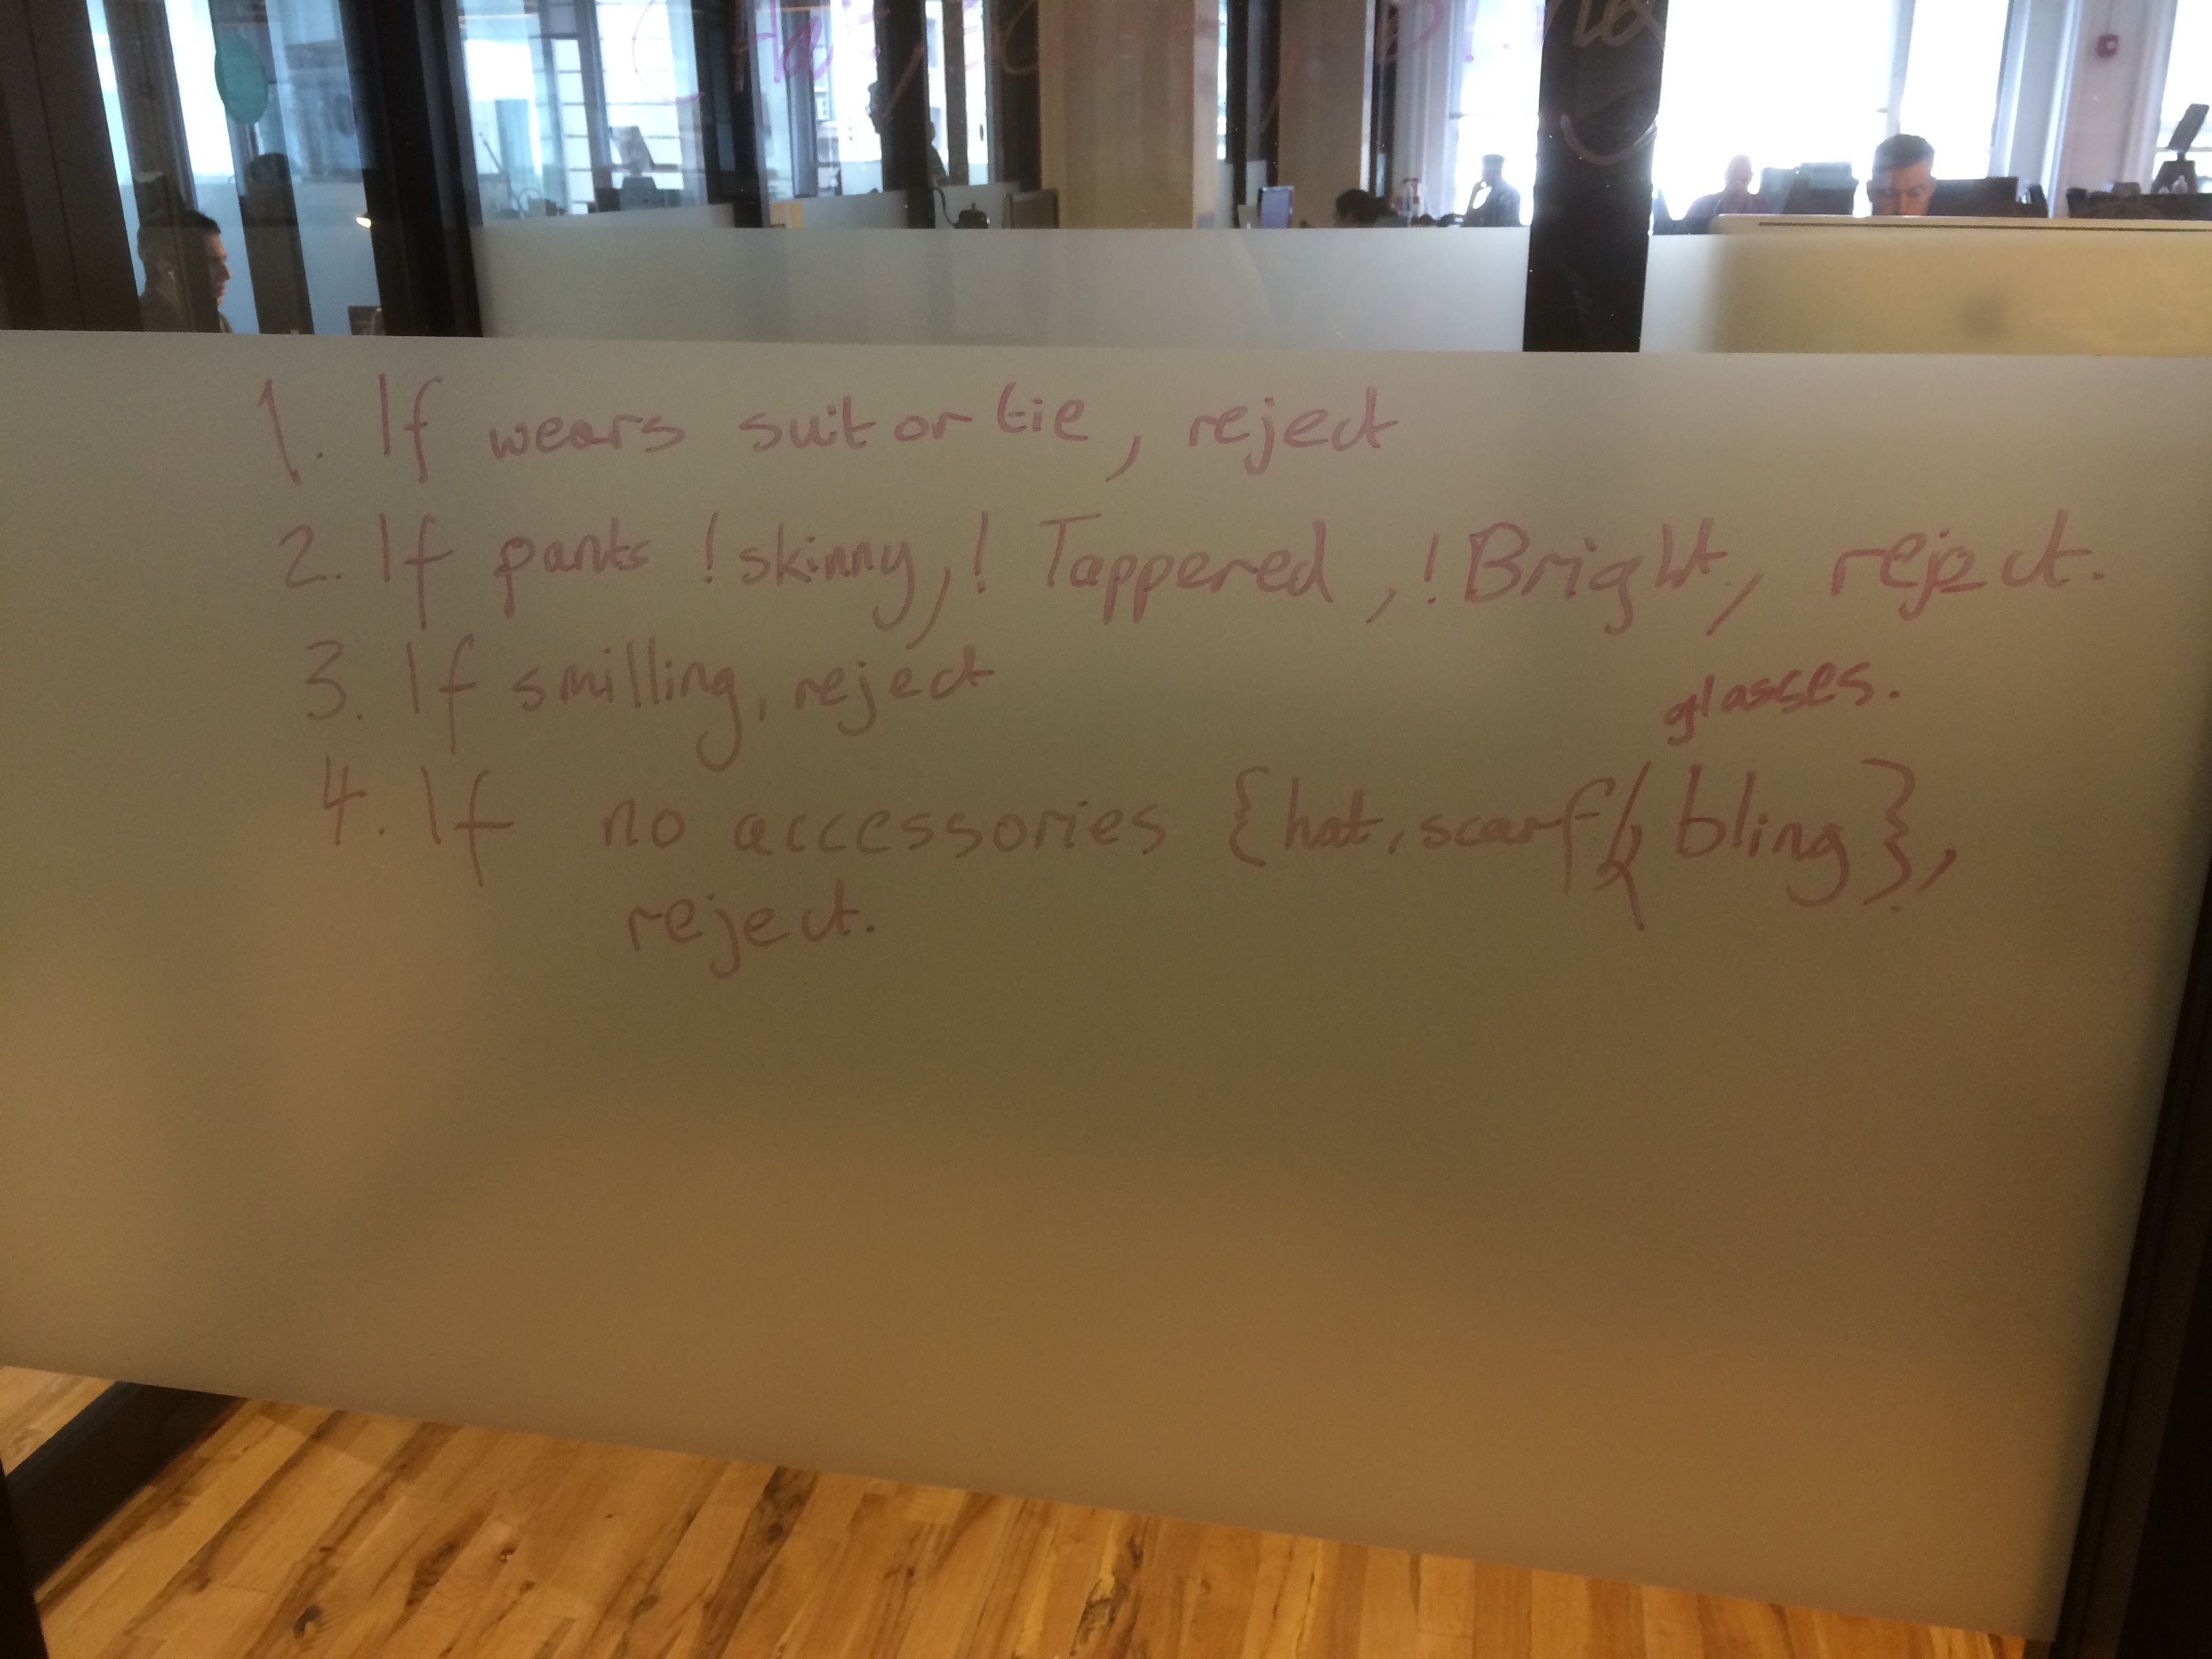 1. If wears suit or tie, reject
2. If pants !skinny, ! Tappered, !Bright, reject.
3. If smilling, reject
glasses.
4. If no accessories {hat, scarf, bling},
reject.